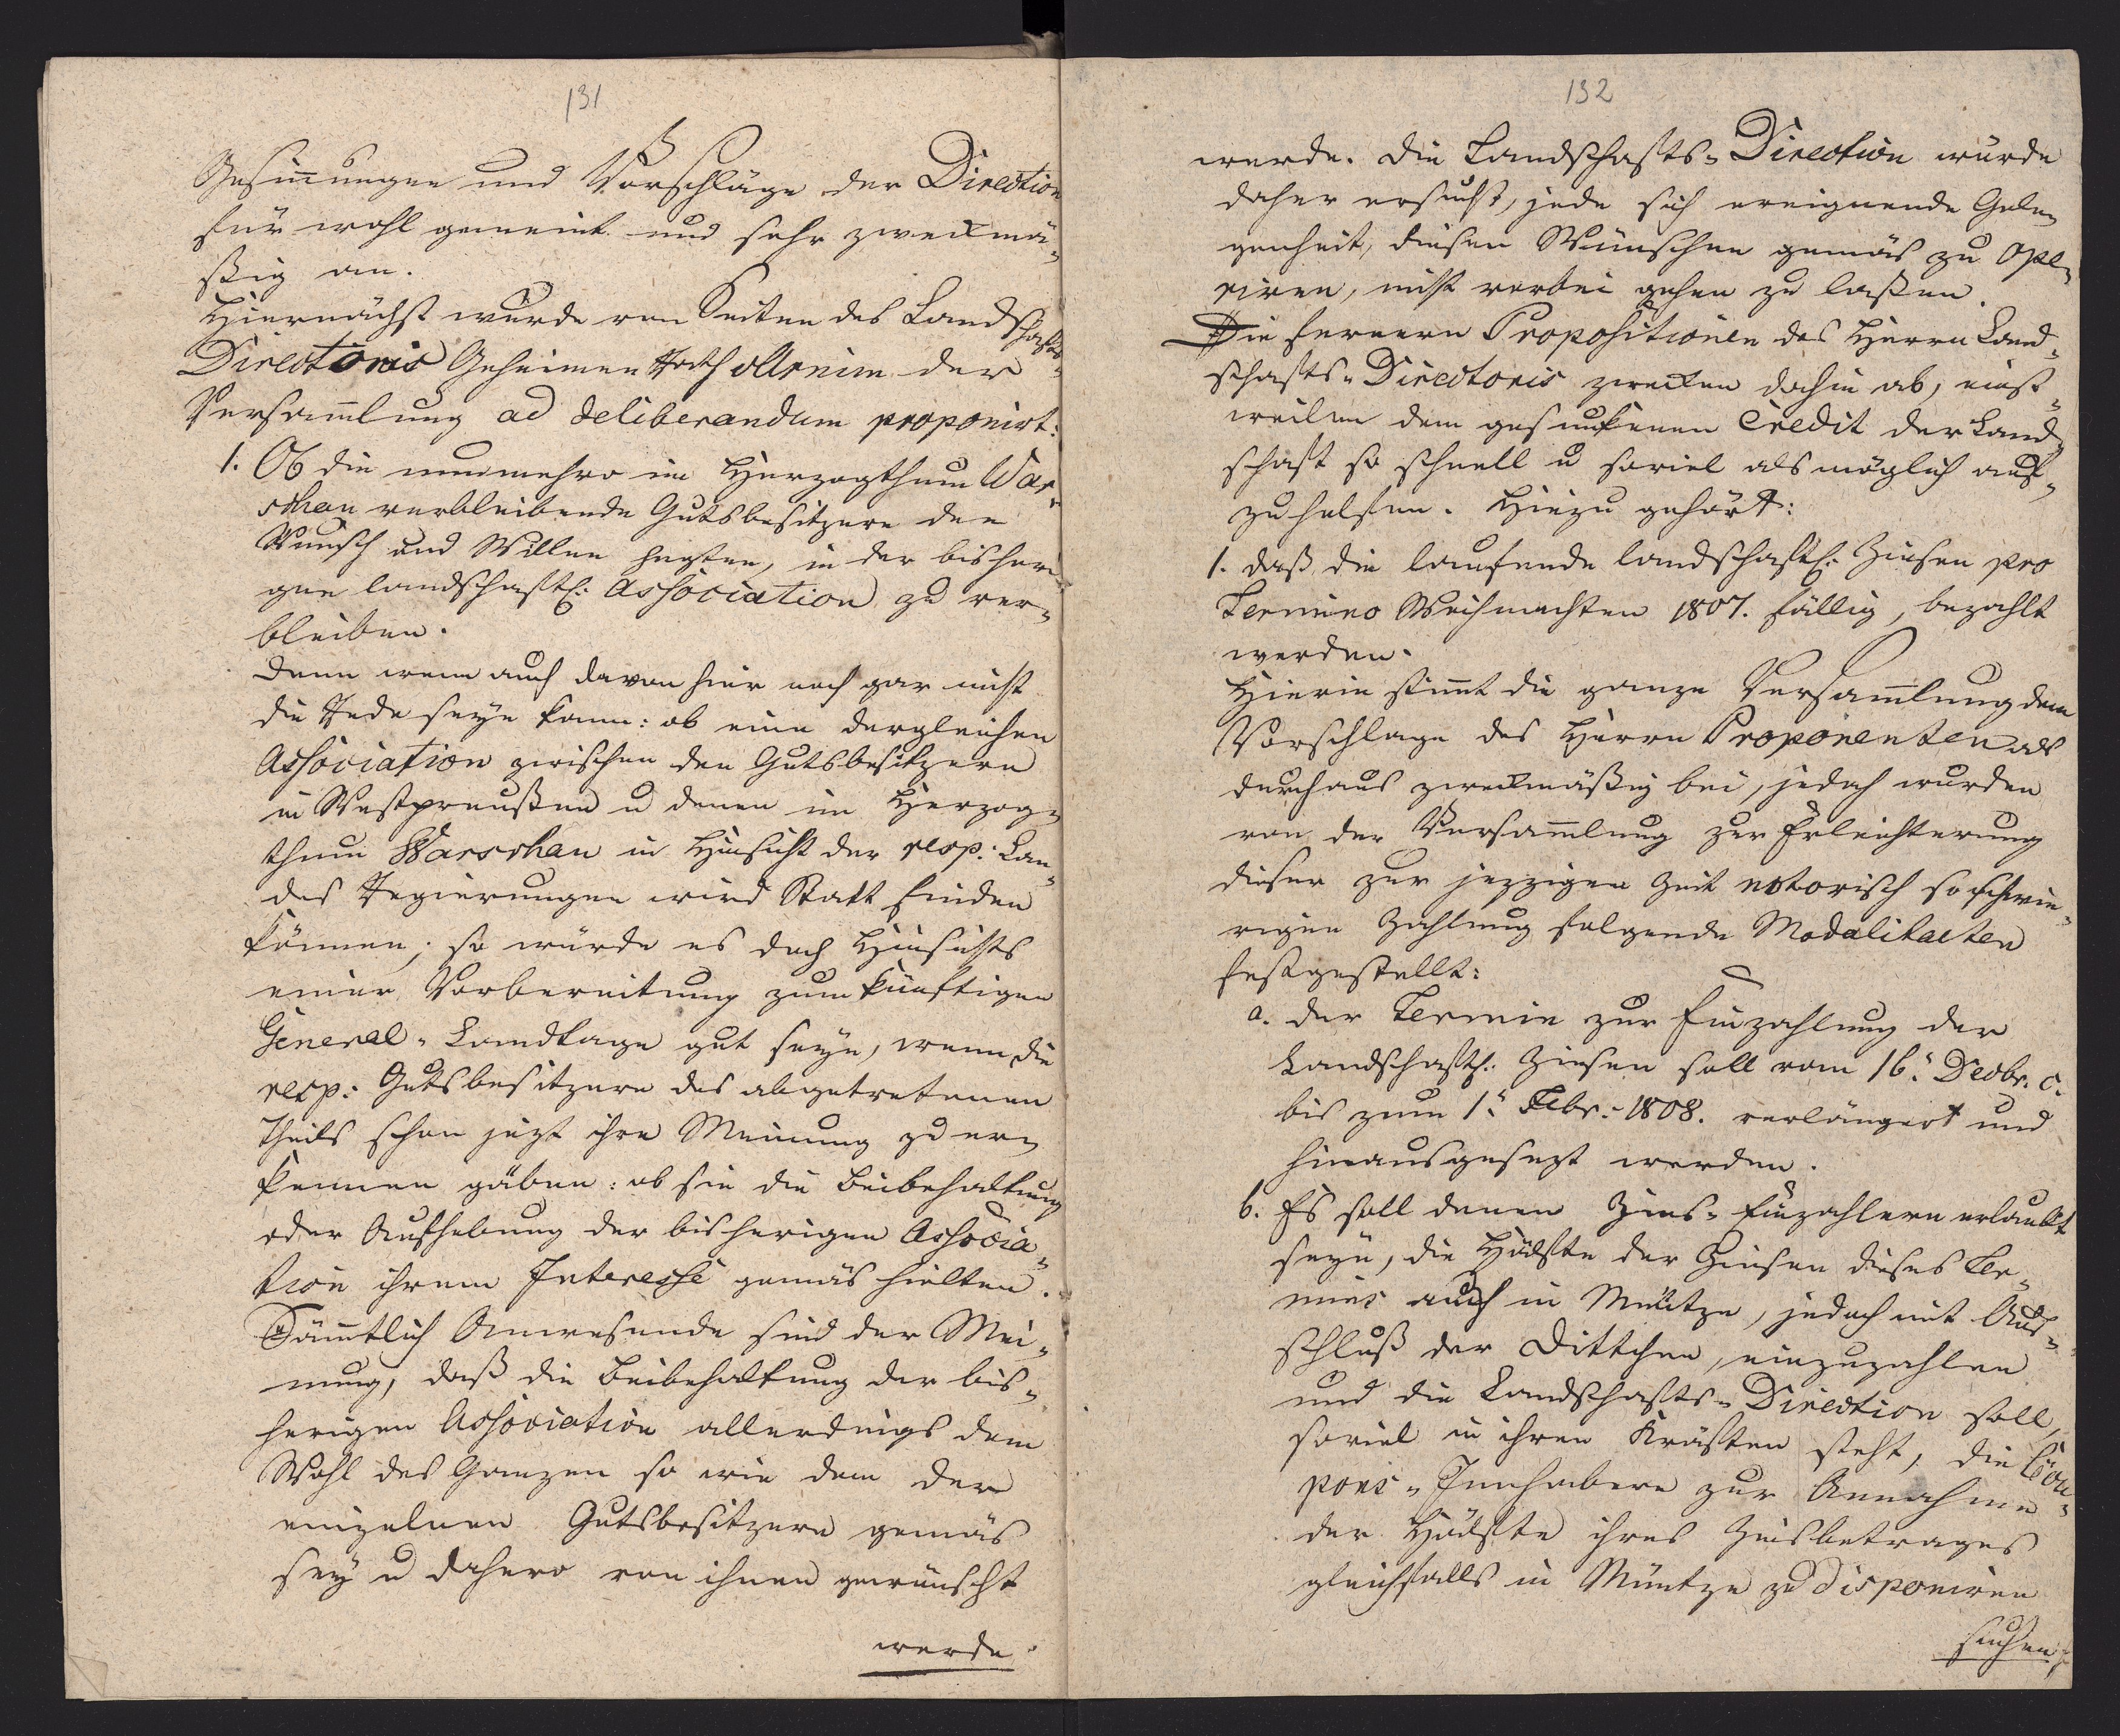 131
Gesinnungen und Vorschläge der Direction
für wohl gemeint und sehr zweckmä-
ßig an.
Hiernächst wurde von Seiten des Landschafts-
Directoris Geheimen Rath v Arnim der
Versamlung ad deliberandum proponirt:
1. Ob die nunmehro im Herzogthum War-
schau verbleibende Gutsbesitzere den
Wunsch und Willen hegten, in der bisheri-
gen landschaftl: Association zu ver-
bleiben.
Denn wenn auch davon hier noch gar nicht
die Rede seyn kann: ob eine dergleichen
Association zwischen den Gutsbesitzern
in Westpreußen u denen im Herzog-
thum Warschau in Hinsicht der resp: Lan-
des Regierungen wird Statt finden
können; so würde es doch Hinsichts
einer Vorbereitung zum künftigen
General-Landtage gut seyn, wenn die
resp: Gutsbesitzere des abgetretenen
Theils schon jezt ihre Meinung zu er-
kennen gäben: ob sie die Beibehaltung
oder Aufhebung der bisherigen Associa-
tion ihrem Interesse gemäs hielten.
Sämtlich Anwesende sind der Mei-
nung, daß die Beibehaltung der bis-
herigen Association allerdings dem
Wohl des Ganzen so wie dem der
einzelnen Gutsbesitzere gemäs
sey u dahero von ihnen gewünscht
werde
132
werde. Die Landschafts-Direction würde
daher ersucht, jede sich ereignende Gele-
genheit, diesen Wünschen gemäs zu ope-
riren, nicht vorbei gehen zu laßen.
Die fernern Propositionen des Herrn Land-
schafts-Directoris zwecken dahin ab, einst-
weilen dem gesunkenen Credit der Land-
schaft so schnell u soviel als möglich auf-
zuhelfen. Hiezu gehört:
1. daß die laufende landschaftl: Zinsen pro
Termino Weihnachten 1807. fällig, bezahlt
werden.
Hierin stimt die ganze Versamlung dem
Vorschlage des Herrn Proponenten als
durchaus zweckmäßig bei, jedoch wurden
von der Versamlung zur Erleichterung
dieser zur jezzigen Zeit notorisch so schwie-
rigen Zahlung folgende Modalitaeten
festgestellt:
a. der Termin zur Einzahlung der
Landschaftl: Zinsen soll vom 16t Decbr. c.
bis zum 1t Febr: 1808. verlängert und
hinausgesezt werden.
b. Es soll denen Zins-Einzahlern erlaubt
seyn, die Hälfte der Zinsen dieses Ter-
mins auch in Müntze, jedoch mit Aus-
schluß der Dittchen, einzuzahlen
und die Landschafts-Direction soll,
soviel in ihren Kräften steht, die Cou-
pons-Innhabere zur Annahme
der Hälfte ihres Zinsbetrages
gleichfalls in Müntze zu disponiren
suchen,